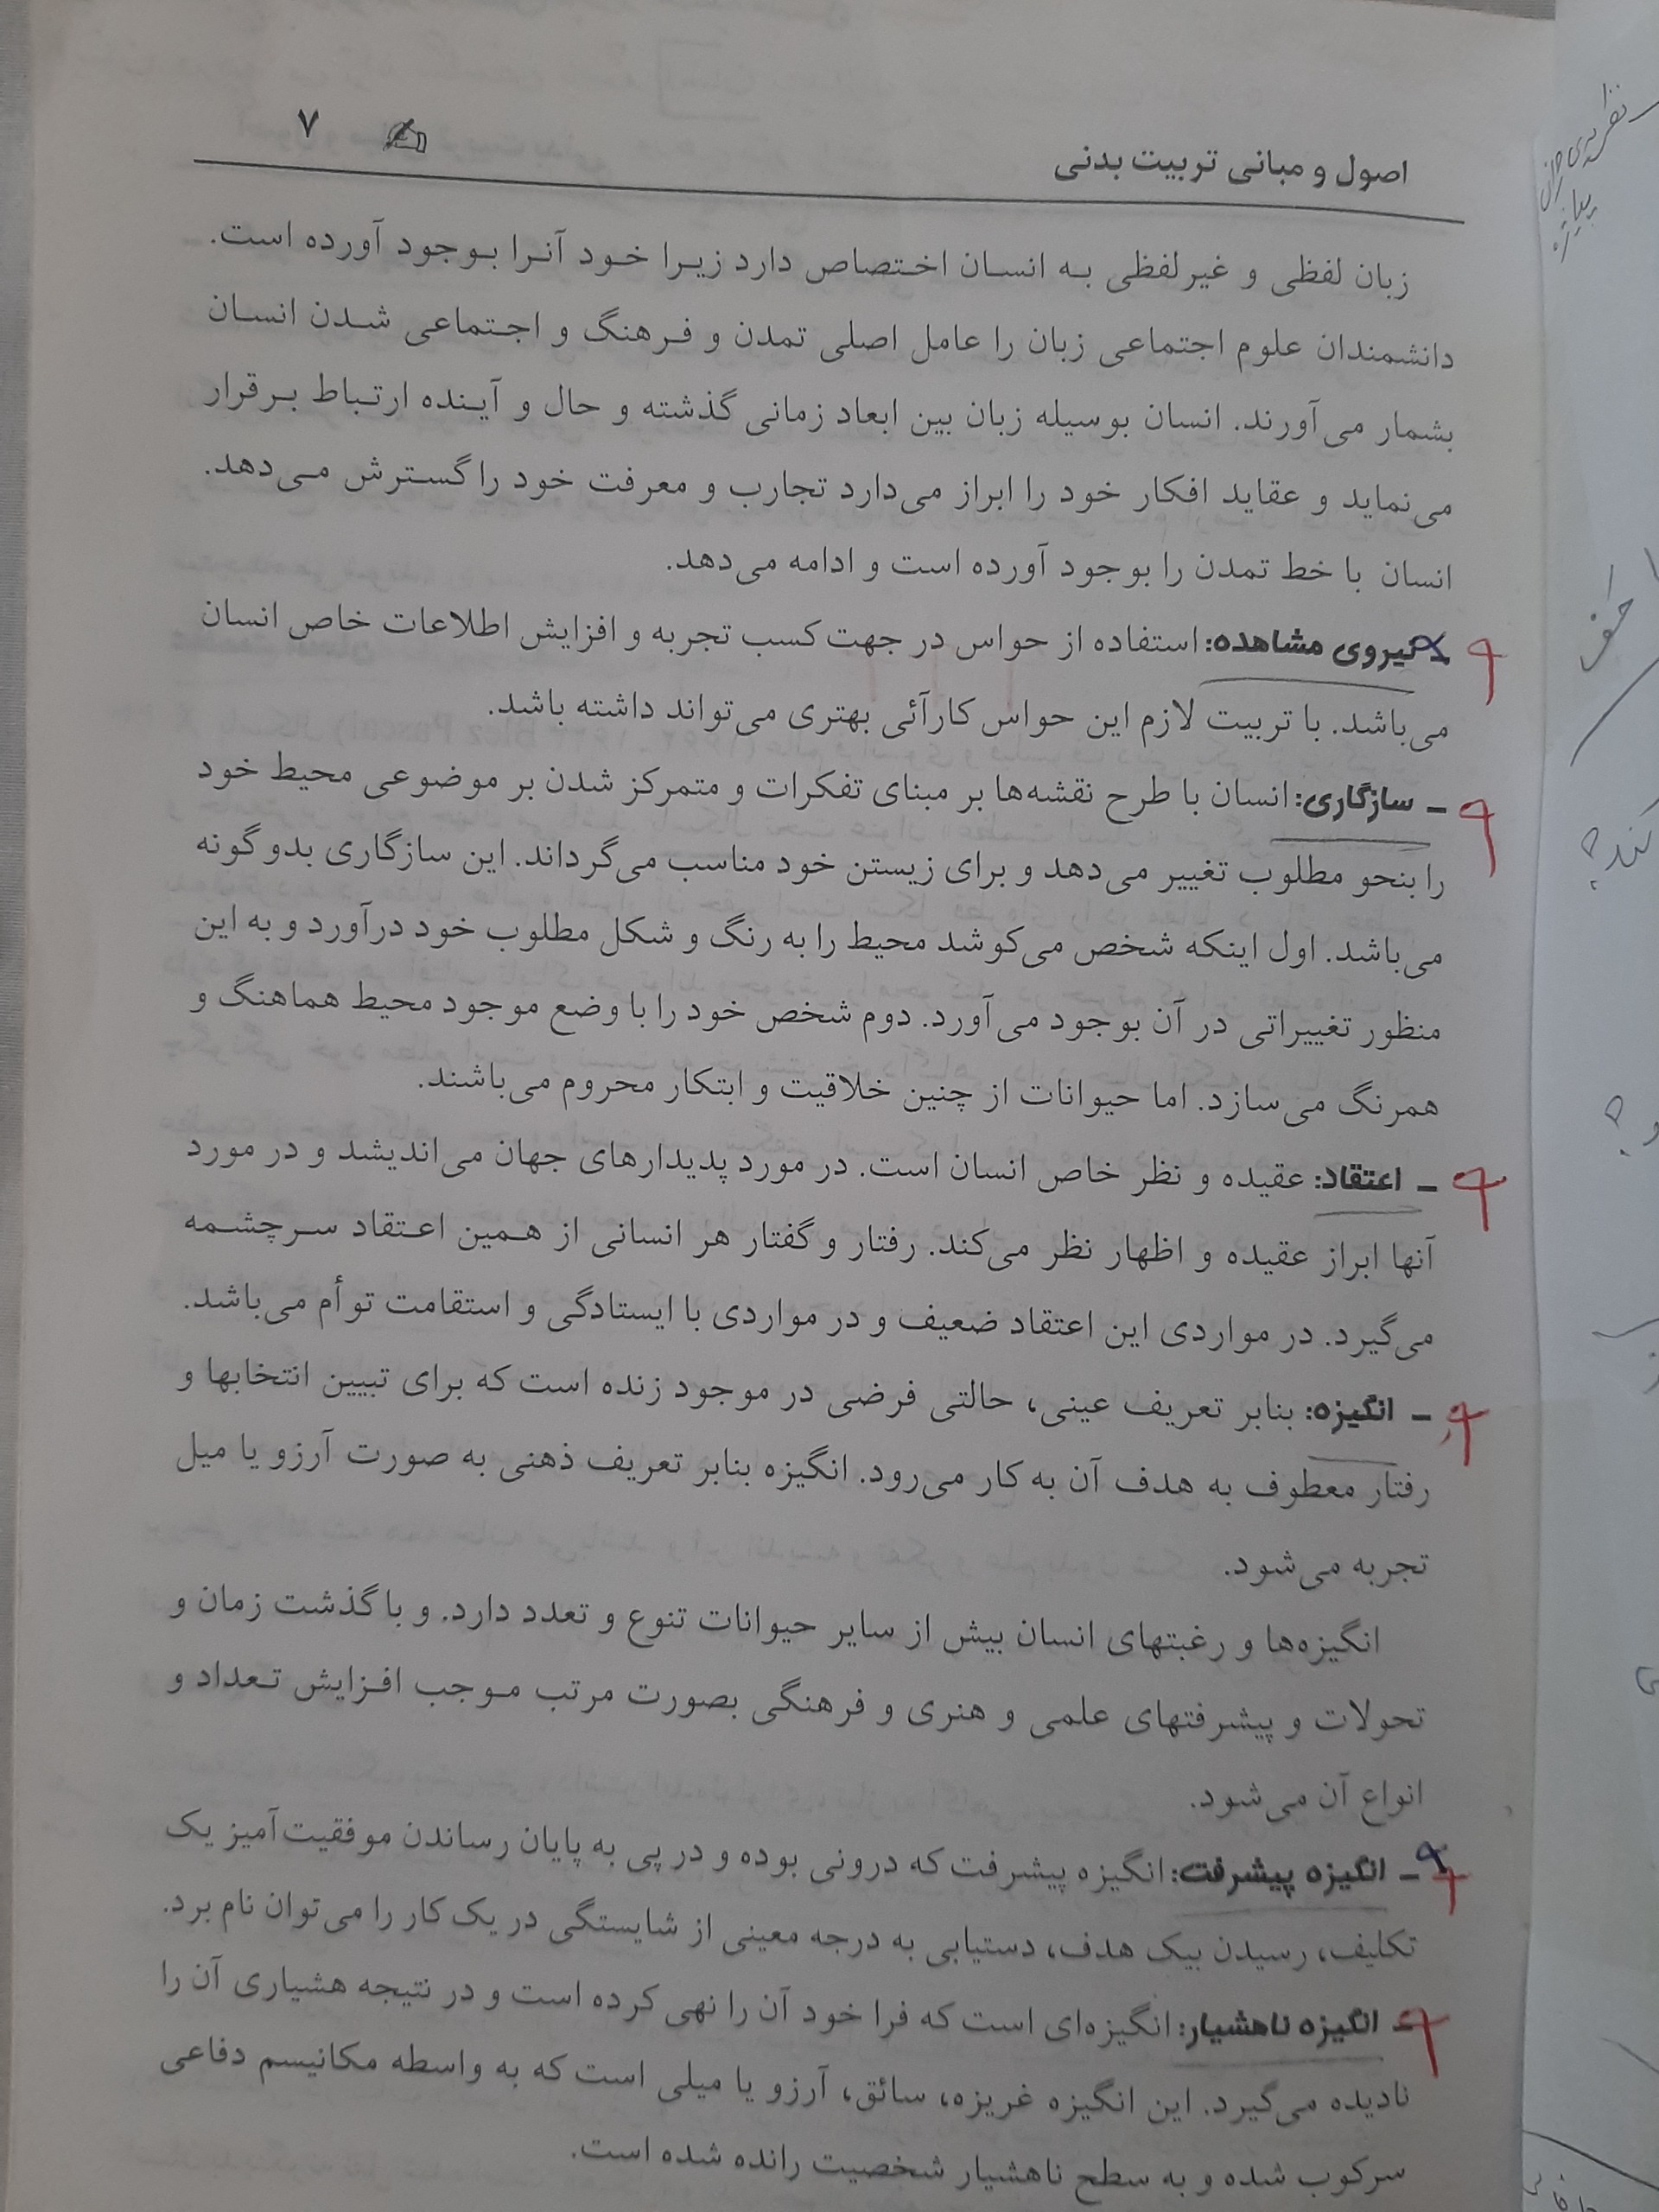 اصول و مبانی تربیت بدنی ۷
زبان لفظی و غیرلفظی به انسان اختصاص دارد زیرا خود آنرا بوجود آورده است.
دانشمندان علوم اجتماعی زبان را عامل اصلی تمدن و فرهنگ و اجتماعی شدن انسان
بشمار می‌آورند. انسان بوسیله زبان بین ابعاد زمانی گذشته و حال و آینده ارتباط برقرار
می‌نماید و عقاید افکار خود را ابراز می‌دارد تجارب و معرفت خود را گسترش می‌دهد.
انسان با خط تمدن را بوجود آورده است و ادامه می‌دهد.
ـ نیروی مشاهده: استفاده از حواس در جهت کسب تجربه و افزایش اطلاعات خاص انسان
می‌باشد. با تربیت لازم این حواس کارآئی بهتری می‌تواند داشته باشد.
ـ سازگاری: انسان با طرح نقشه‌ها بر مبنای تفکرات و متمرکز شدن بر موضوعی محیط خود
را بنحو مطلوب تغییر می‌دهد و برای زیستن خود مناسب می‌گرداند. این سازگاری بدوگونه
می‌باشد. اول اینکه شخص می‌کوشد محیط را به رنگ و شکل مطلوب خود درآورد و به این
منظور تغییراتی در آن بوجود می‌آورد. دوم شخص خود را با وضع موجود محیط هماهنگ و
همرنگ می‌سازد. اما حیوانات از چنین خلاقیت و ابتکار محروم می‌باشند.
ـ اعتقاد: عقیده و نظر خاص انسان است. در مورد پدیدارهای جهان می‌اندیشد و در مورد
آنها ابراز عقیده و اظهار نظر می‌کند. رفتار و گفتار هر انسانی از همین اعتقاد سرچشمه
می‌گیرد. در مواردی این اعتقاد ضعیف و در مواردی با ایستادگی و استقامت توأم می‌باشد.
ـ انگیزه: بنابر تعریف عینی، حالتی فرضی در موجود زنده است که برای تبیین انتخابها و
رفتار معطوف به هدف آن به کار می‌رود. انگیزه بنابر تعریف ذهنی به صورت آرزو یا میل
تجربه می‌شود.
انگیزه‌ها و رغبتهای انسان بیش از سایر حیوانات تنوع و تعدد دارد. و با گذشت زمان و
تحولات و پیشرفتهای علمی و هنری و فرهنگی بصورت مرتب موجب افزایش تعداد و
انواع آن می‌شود.
ـ انگیزه پیشرفت: انگیزه پیشرفت که درونی بوده و در پی به پایان رساندن موفقیت‌آمیز یک
تکلیف، رسیدن بیک هدف، دستیابی به درجه معینی از شایستگی در یک کار را می‌توان نام برد.
ـ انگیزه ناهشیار: انگیزه‌ای است که فرا خود آن را نهی کرده است و در نتیجه هشیاری آن را
نادیده می‌گیرد. این انگیزه غریزه، سائق، آرزو یا میلی است که به واسطه مکانیسم دفاعی
سرکوب شده و به سطح ناهشیار شخصیت رانده شده است.